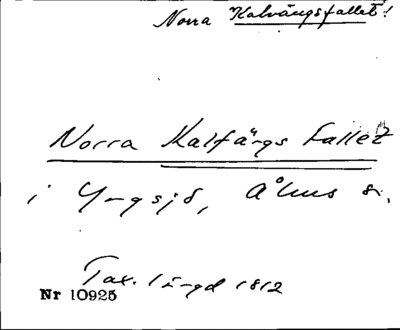 Norra Kalvängsfallet!
Norra Kalfängs Fallet
i Yngsjö, Åhus s:n.
Tax. längd 1812
Nr 10925